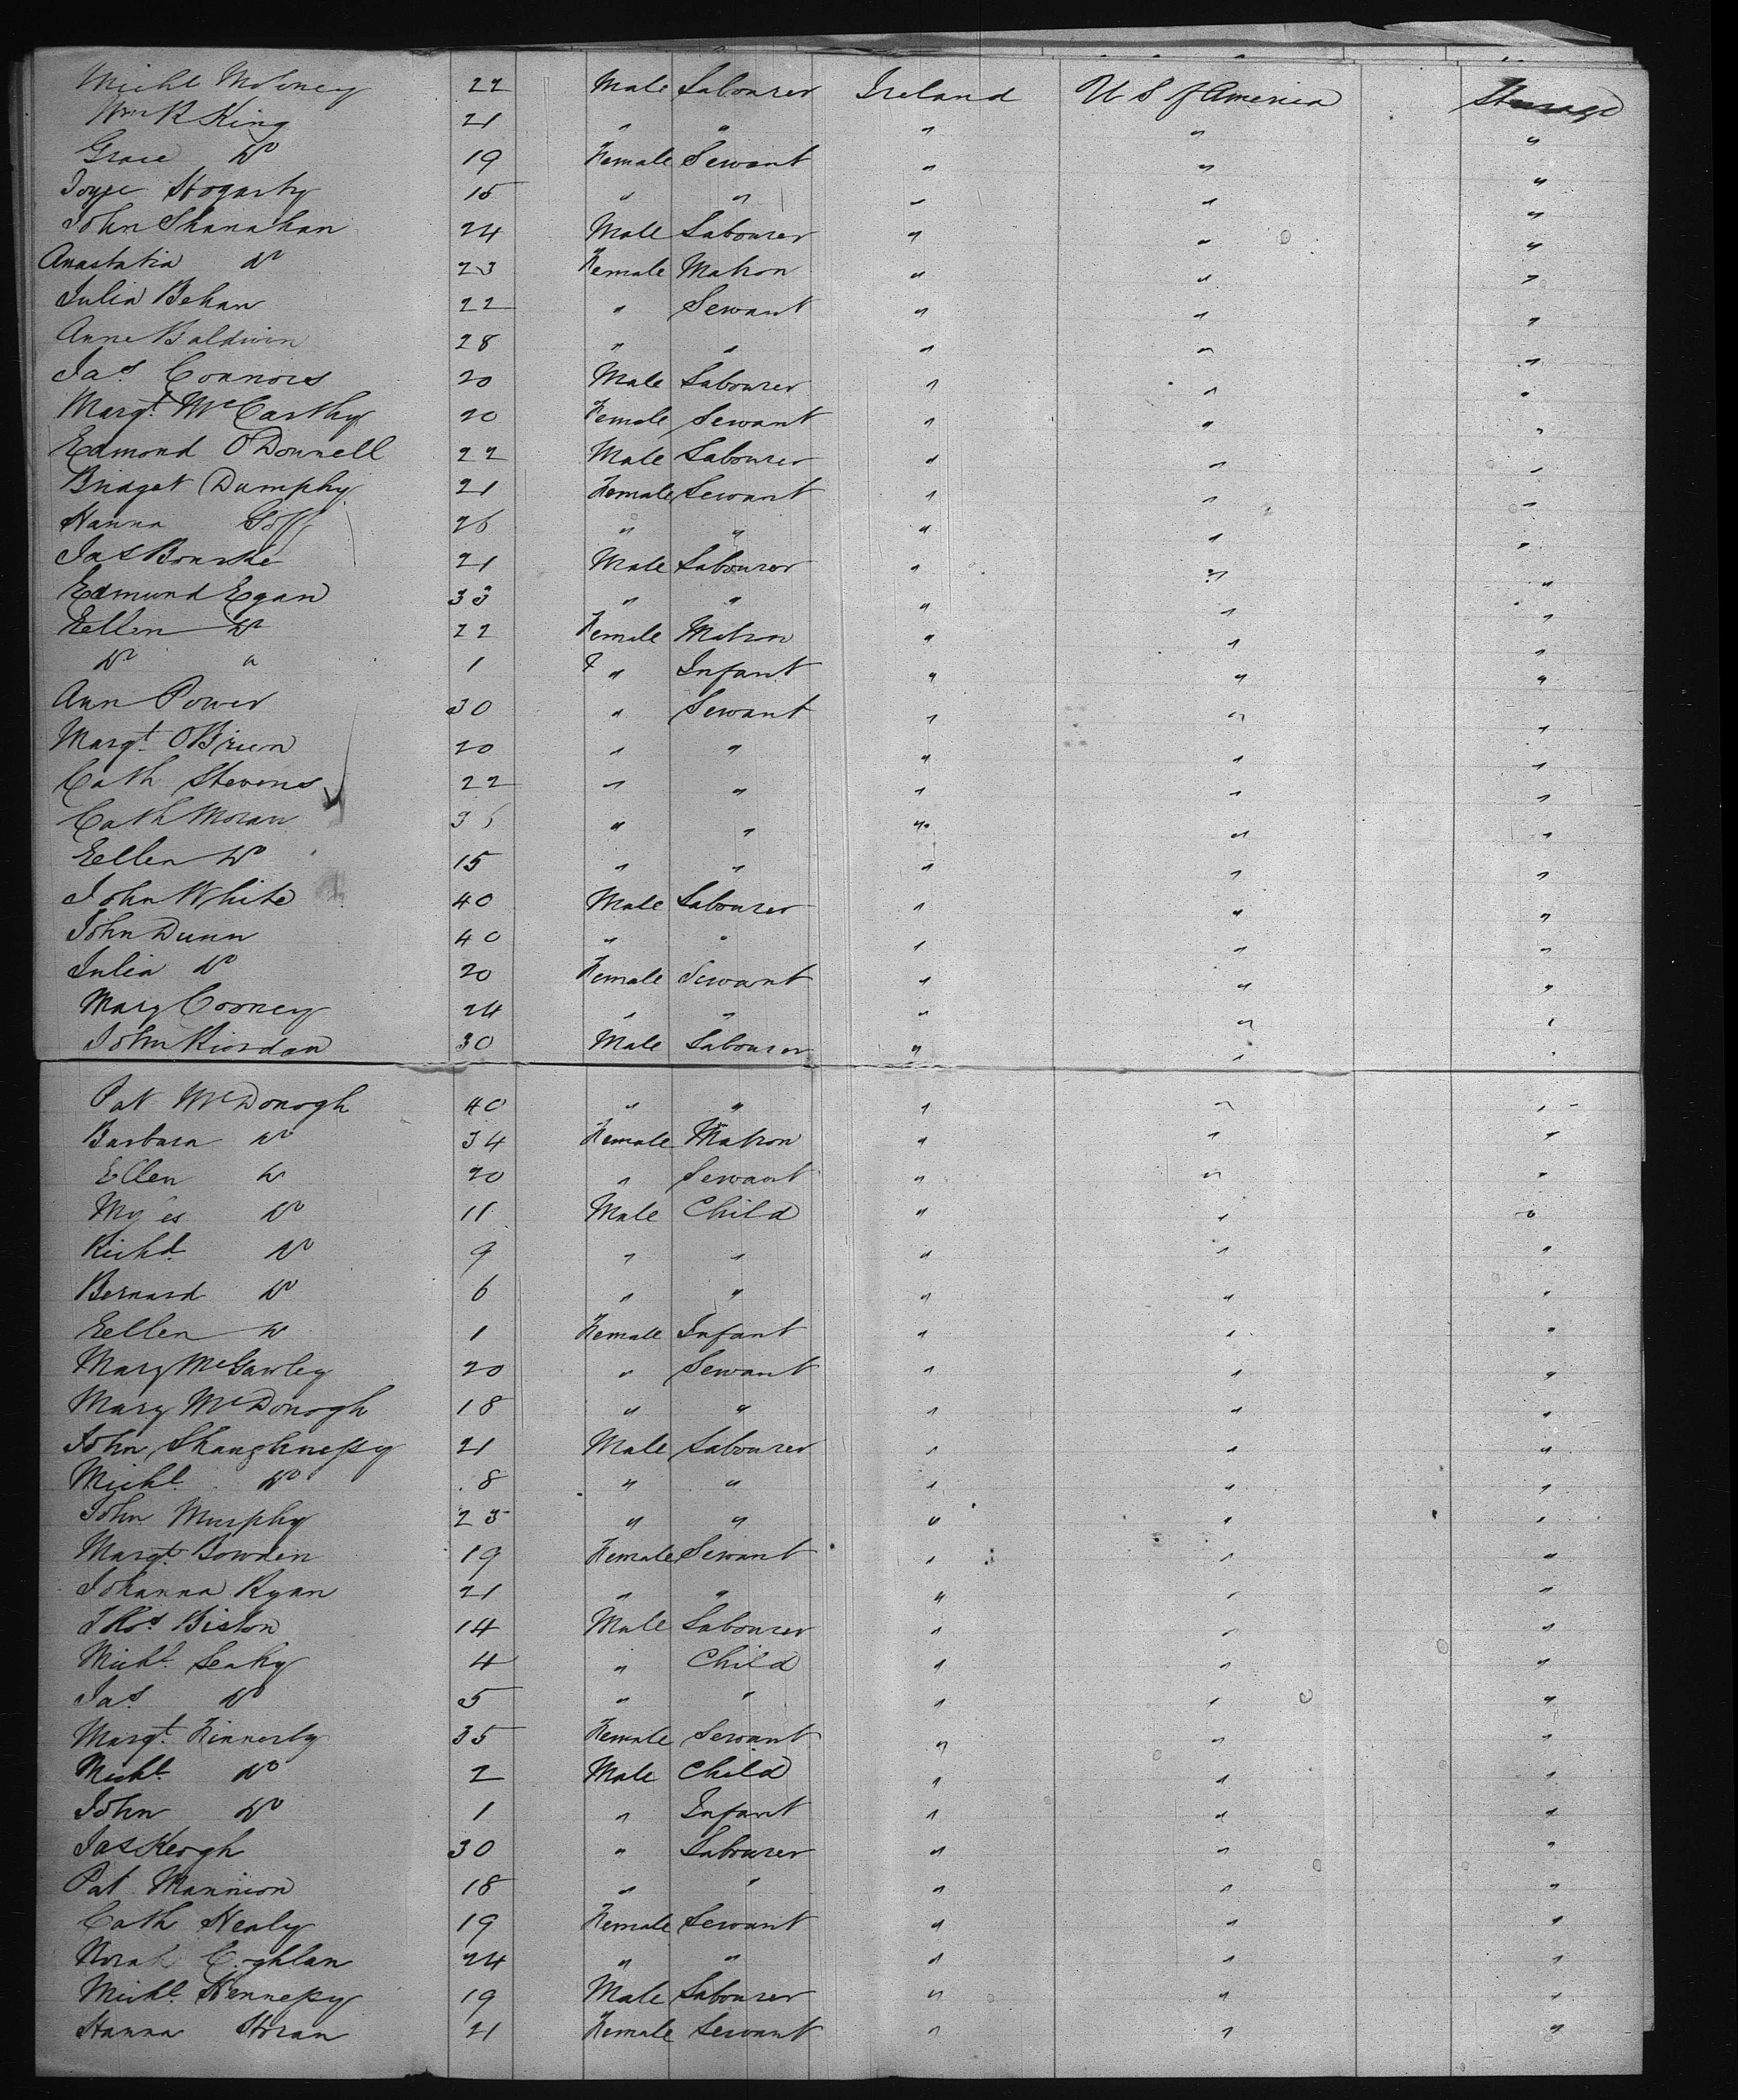 Michl Moloney 22 Male Labourer Ireland U S of America Steerage
Wm R King 21 " " " " "
Grace Do 19 Female Servant " " "
Joyce Hogarty 15 " " " " "
John Shanahan 24 Male Labourer " " "
Anastatia Do 23 Female Matron " " "
Julia Behan 22 " Servant " " "
Anne Baldwin 28 " " " " "
Jas. Connors 20 Male Labourer " " "
Margt. McCarthy 20 Female Servant " " "
Edmond O'Donnell 22 Male Labourer " " "
Bridget Dumphy 21 Female Servant " " "
Hanna Goff 26 " " " " "
Jas Bourke 21 Male Labourer " " "
Edmund Egan 33 " " " " "
Eellen Do 22 Female Matron " " "
Do " 1 " Infant " " "
Ann Power 30 " Servant " " "
Margt. OBrien 20 " " " " "
Cath Stevens 22 " " " " "
Cath Moran 35 " " " " "
Eellen Do 15 " " " " "
John White 40 Male Labourer " " "
John Dunn 40 " " " " "
Julia Do 20 Female Servant " " "
Mary Cooney 24 " " " " "
John Riordan 30 Male Labourer " " "
Pat McDonogh 40 " " " " "
Barbara Do 34 Female Matron " " "
Ellen Do 20 " Servant " " "
Myles Do 11 Male Child " " "
Richd. Do 9 " " " " "
Bernard Do 6 " " " " "
Eellen Do 1 Female Infant " " "
Mary McGawley 20 " Servant " " "
Mary McDonogh 18 " " " " "
John Shaughnessy 21 Male Labourer " " "
Michl. Do 8 " " " " "
John Murphy 23 " " " " "
Margt. Bowden 19 Female Servant " " "
Johanna Ryan 21 " " " " "
Thos. Biston 14 Male Labourer " " "
Michl. Leahy 4 " Child " " "
Jas. Do 5 " " " " "
Margt. Finnerty 35 Female Servant " " "
Michl. Do 2 Male Child " " "
John Do 1 " Infant " " "
Jas Keogh 30 " Labourer " " "
Pat Mannion 18 " " " " "
Cath Healy 19 Female Servant " " "
Norah Coghlan 24 " " " " "
Michl. Hennessy 19 Male Labourer " " "
Hanna Horan 21 Female Servant " " "